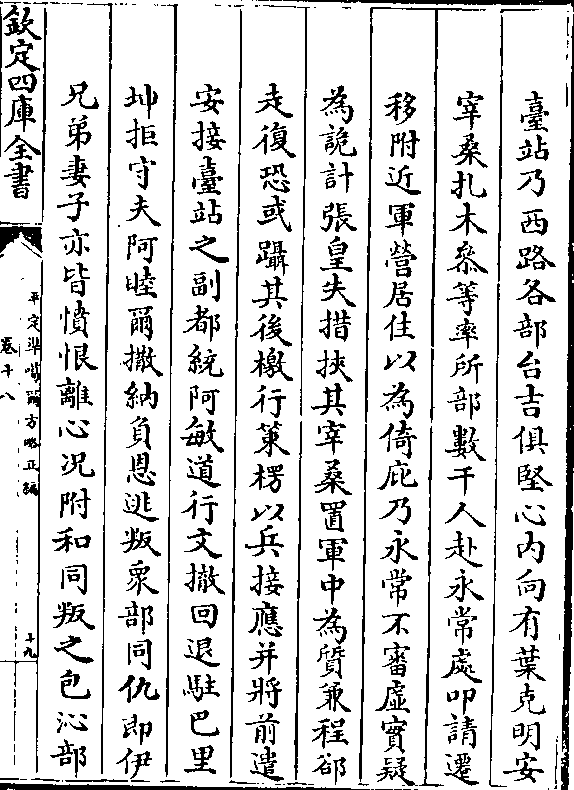 臺站乃西路各部台吉俱堅心内向有葉克明安
宰桑扎木叅等率所部數千人赴永常處叩請遷
移附近軍營居住以為倚庇乃永常不審虚實疑
為詭計張皇失措挾其宰桑置軍中為質兼程郤
走復恐或躡其後檄行策楞以兵接應并將前遣
安接臺站之副都統阿敏道行文撤回退駐巴里
坤拒守夫阿睦爾撒納負恩逃叛衆部同仇即伊
兄弟妻子亦皆憤恨離心况附和同叛之包沁部
欽定四庫全書
平定準噶爾方略正編
卷十八
十九